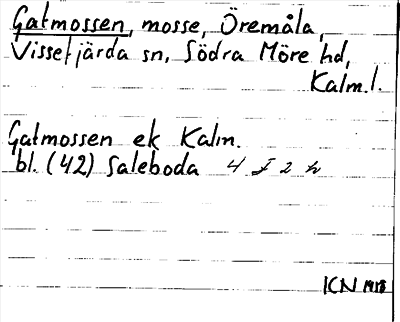 Gatmossen, mosse, Öremåla,
Vissefjärda sn, Södra Möre hd,
Kalm.l.
Gatmossen ek Kalm.
bl. (42) Saleboda 4 I 2 h
KN